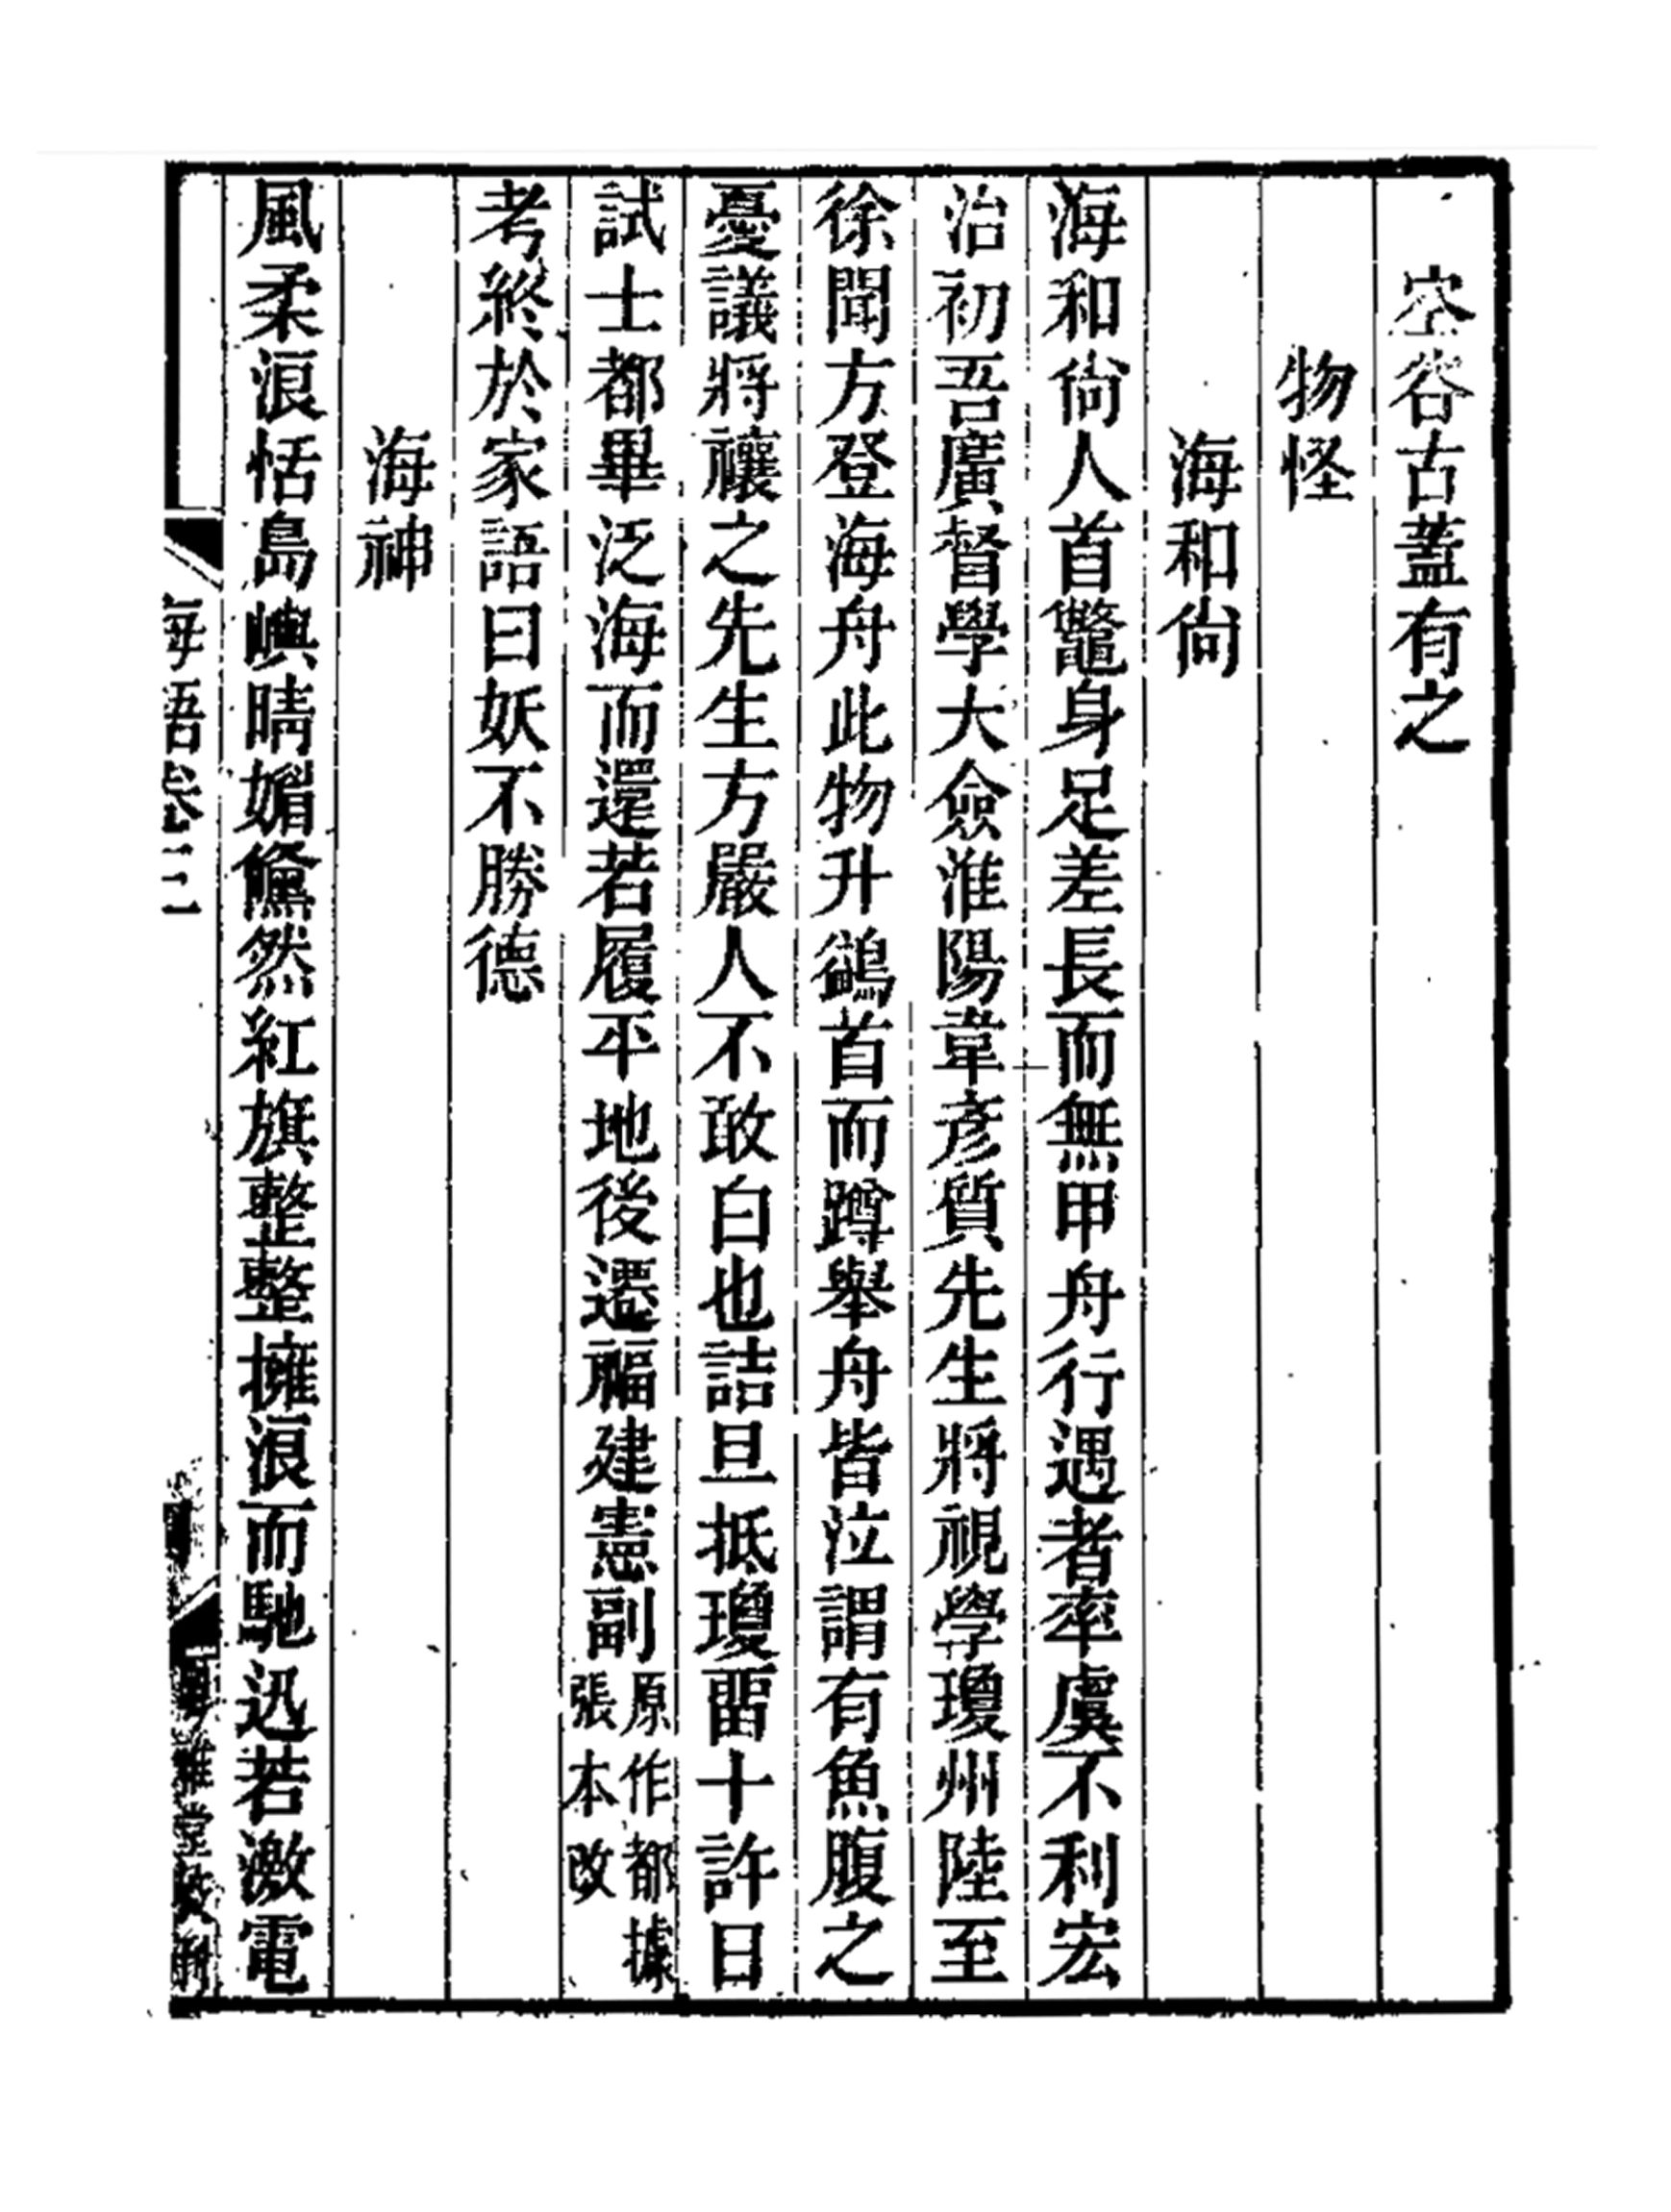 空谷古蓋有之
物怪
海和尙
海和尙人首鼈身足差長而無甲舟行遇者率虞不利宏
治初吾廣督學大僉淮陽韋彥質先生將視學瓊州陸至
徐聞方登海舟此物升鷁首而蹲舉舟皆泣謂有魚腹之
憂議將禳之先生方嚴人不敢白也詰旦抵瓊畱十許日
試士都畢泛海而還若履平地後遷福建憲副原作都據
張本改
考終於家語曰妖不勝德
海神
風柔浪恬島嶼晴媚儵然紅旗整整擁浪而馳迅若激電
海語卷三